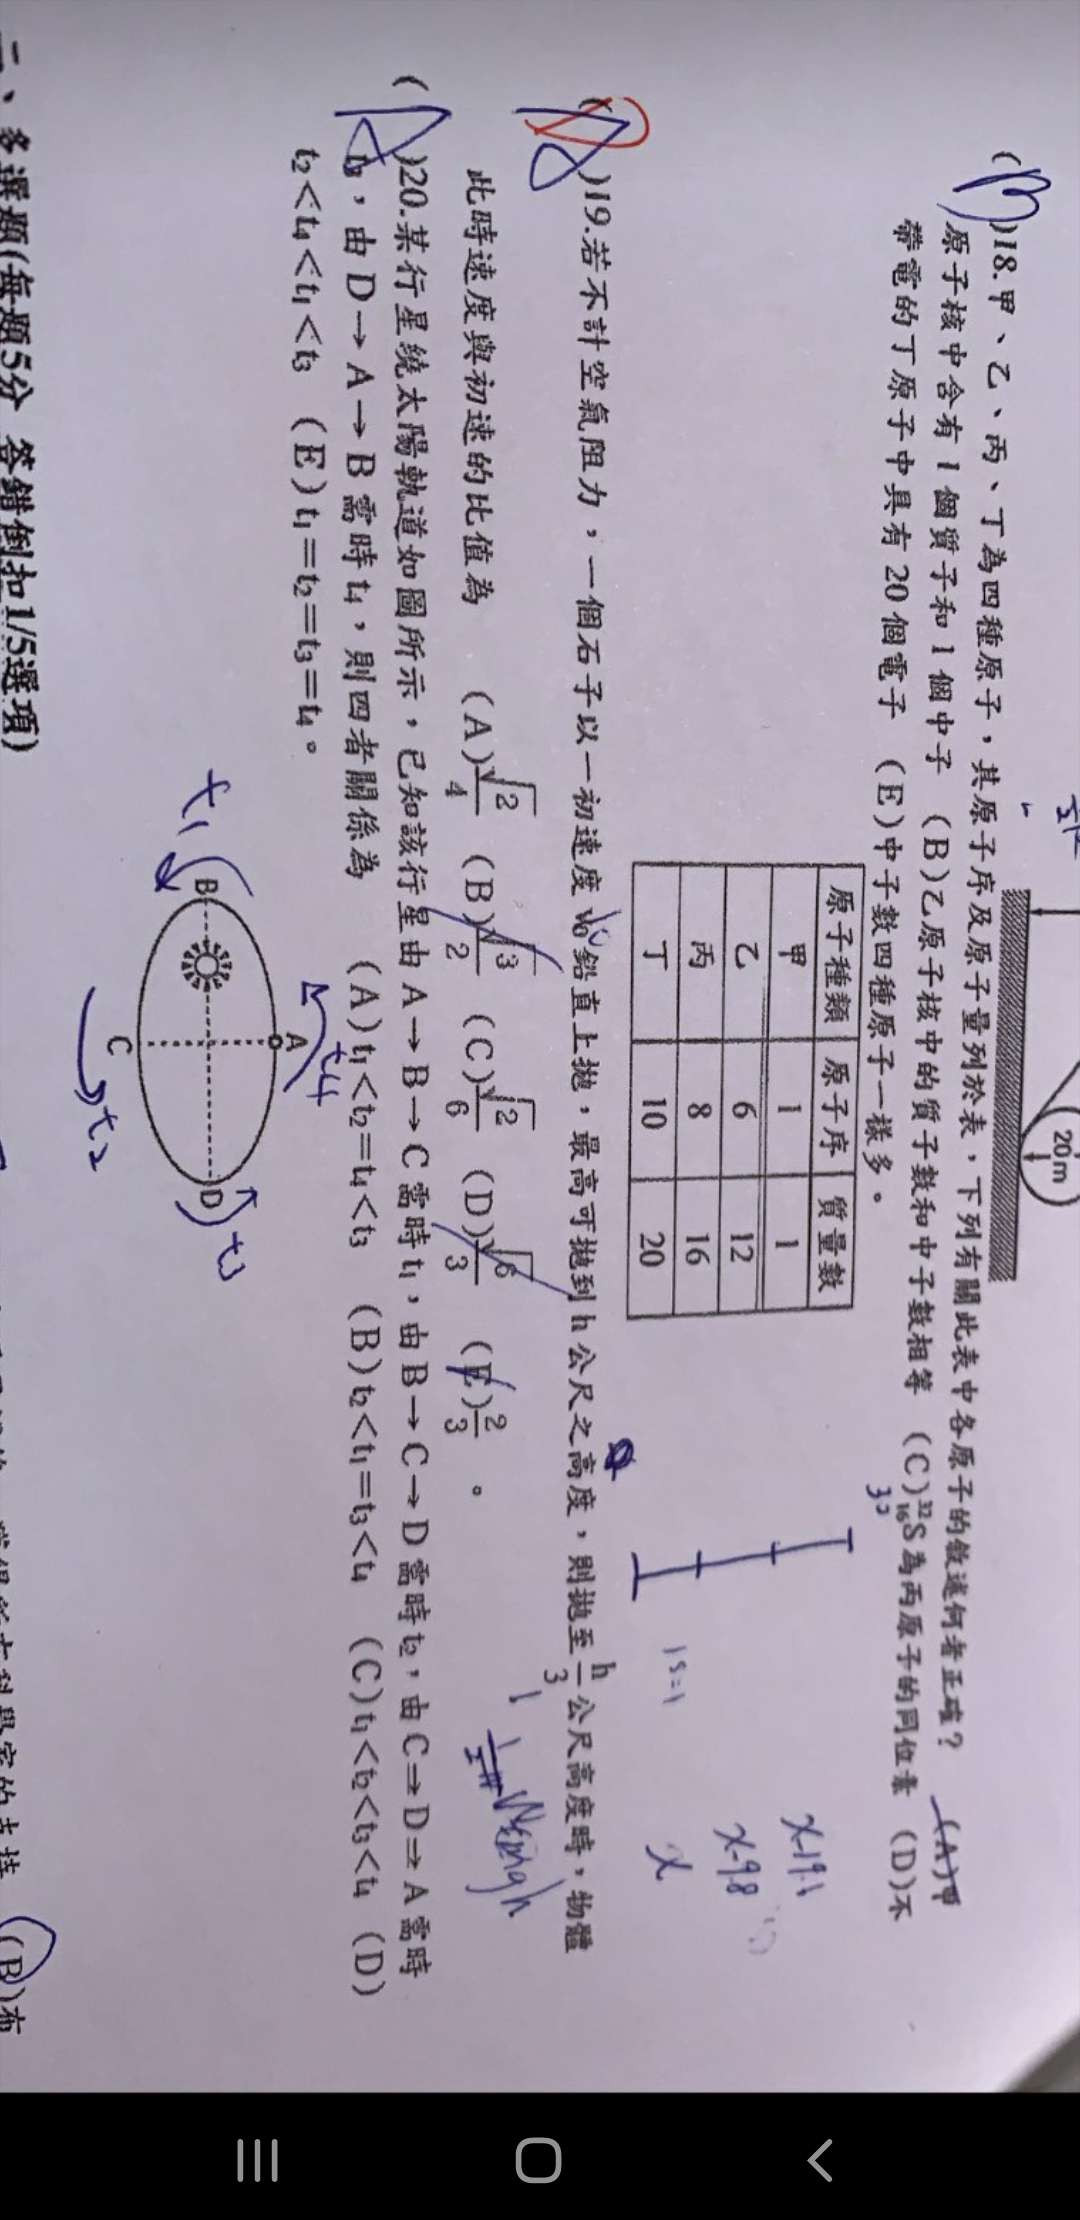 20m
( )18.甲、乙、丙、丁為四種原子，其原子序及原子量列於表，下列有關此表中各原子的敘述何者正確？ (A)甲
原子核中含有1個質子和1個中子 (B)乙原子核中的質子數和中子數相等 (C)³²₁₆S為丙原子的同位素 (D)不
帶電的丁原子中具有20個電子 (E)中子數四種原子一樣多。
原子種類 原子序 質量數
甲 1 1
乙 6 12
丙 8 16
丁 10 20
1S=1
x-19.1
x-9.8
x
( )19.若不計空氣阻力，一個石子以一初速度v₀鉛直上拋，最高可拋到h公尺之高度，則拋至h/3公尺高度時，物體
此時速度與初速的比值為 (A)√2/4 (B)√3/2 (C)√2/6 (D)√6/3 (E)2/3 。
( )20.某行星繞太陽軌道如圖所示，已知該行星由A→B→C需時t₁，由B→C→D需時t₂，由C→D→A需時
t₃，由D→A→B需時t₄，則四者關係為 (A)t₁<t₂=t₄<t₃ (B)t₂<t₁=t₃<t₄ (C)t₁<t₂<t₃<t₄ (D)
t₂<t₄<t₁<t₃ (E)t₁=t₂=t₃=t₄。
A
t4
t1
B
D
t3
C
t2
二、多選題(每題5分 答錯倒扣1/5選項)
(B)布